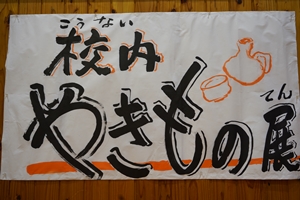 こうない
校内
てん
やきもの展